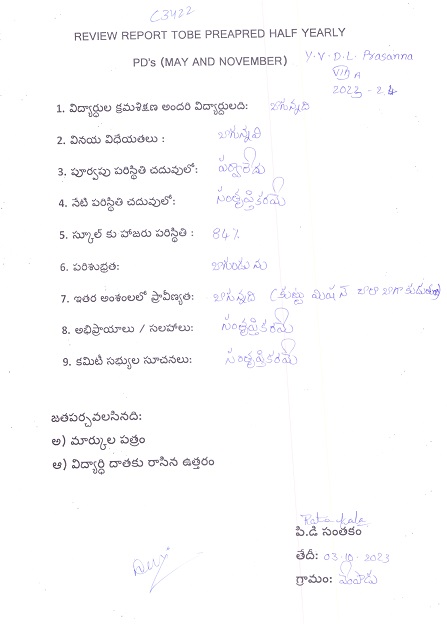 C3422
REVIEW REPORT TOBE PREAPRED HALF YEARLY
PD's (MAY AND NOVEMBER)
Y.V.D.L. Prasanna
VIII A
2023 - 24
1. విద్యార్ధుల క్రమశిక్షణ అందరి విద్యార్ధులది: బాగున్నది
2. వినయ విధేయతలు : బాగున్నది
3. పూర్వపు పరిస్థితి చదువులో: పర్వాలేదు
4. నేటి పరిస్థితి చదువులో: సంతృప్తికరమే
5. స్కూల్ కు హాజరు పరిస్థితి : 84%
6. పరిశుభ్రత: బాగుండును
7. ఇతర అంశంలలో ప్రావీణ్యత: బాగున్నది (కుట్టు మిషన్ చాలా బాగా
8. అభిప్రాయాలు / సలహాలు: సంతృప్తికరమే
9. కమిటీ సభ్యుల సూచనలు: సంతృప్తికరమే
జతపర్చవలసినది:
అ) మార్కుల పత్రం
ఆ) విద్యార్ధి దాతకు రాసిన ఉత్తరం
పి.డి సంతకం
తేదీ: 03-10-2023
గ్రామం: